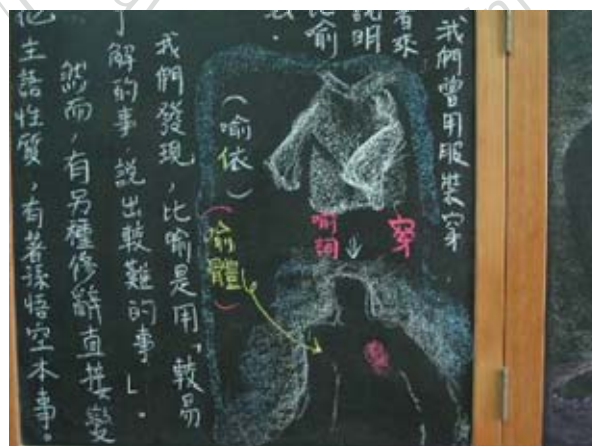 我們曾用服裝穿
著來
說明
比喻
我們發現，比喻是用「較易
了解的事，說出較難的事」。
然而，有另種修辭直接變
他主語性質，有著孫悟空本事。
（喻依）
穿
喻詞
（喻體）